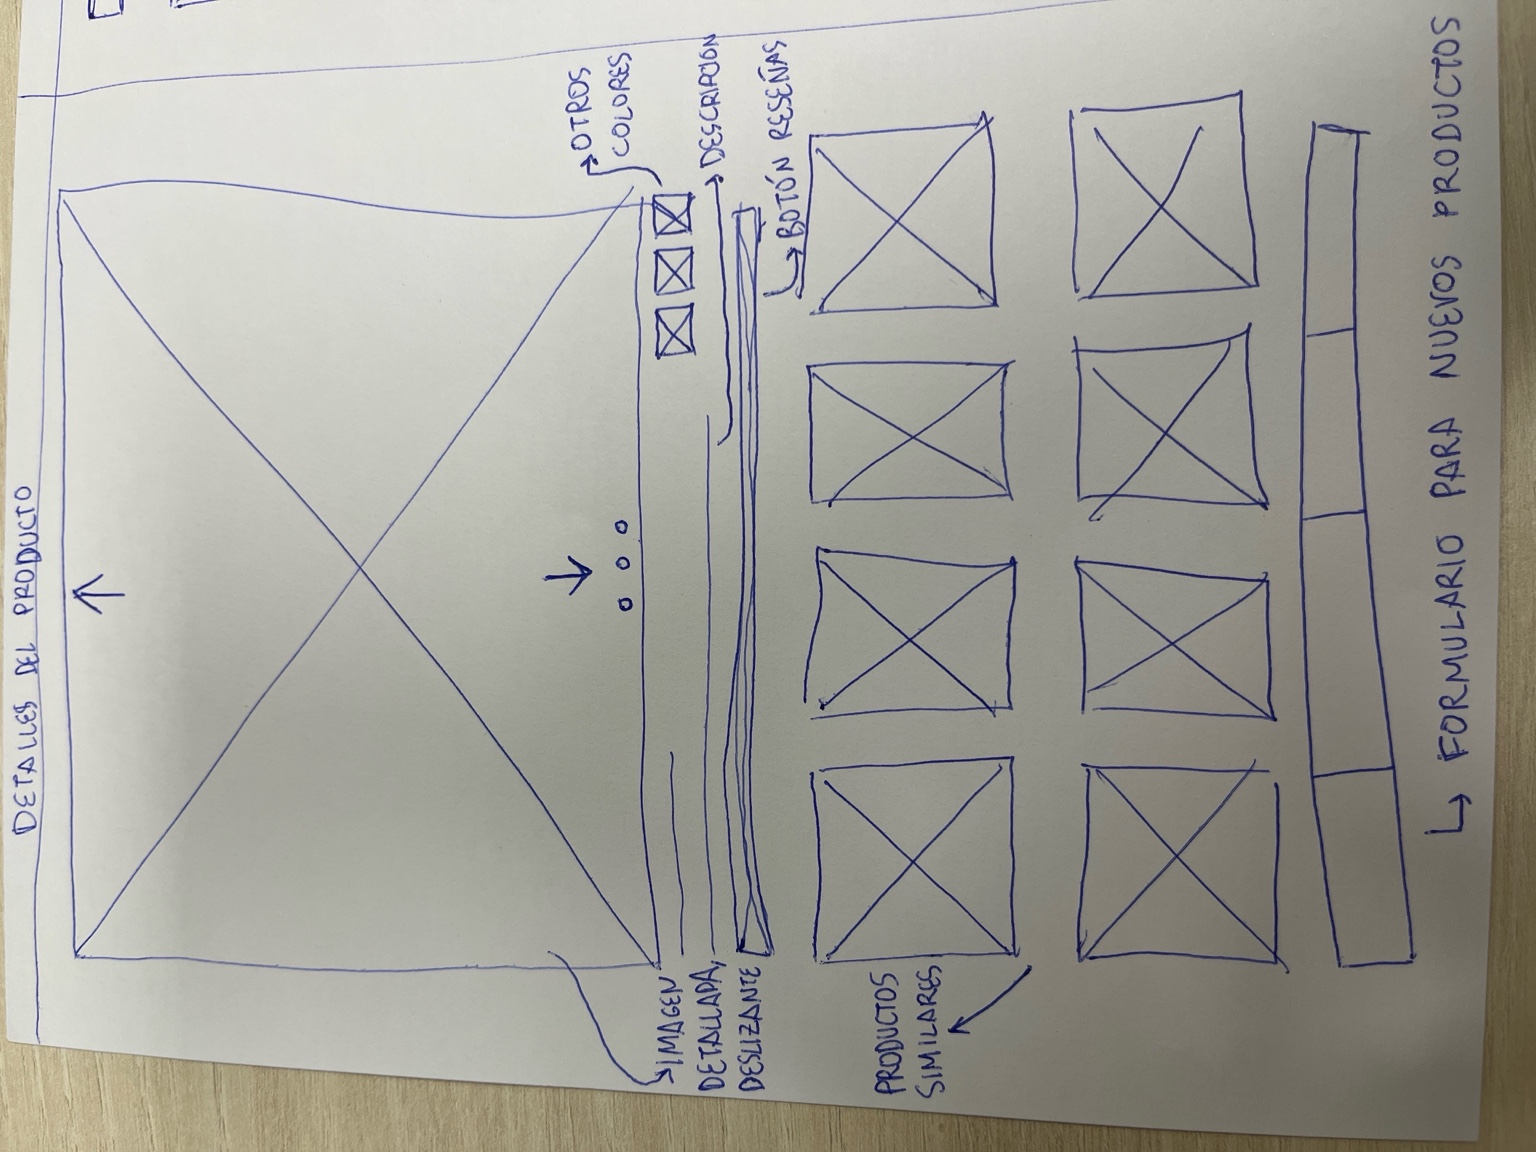 DETALLES DEL PRODUCTO
OTROS
COLORES
IMAGEN
DETALLADA,
DESLIZANTE
DESCRIPCION
BOTÓN RESEÑAS
PRODUCTOS
SIMILARES
FORMULARIO PARA NUEVOS PRODUCTOS